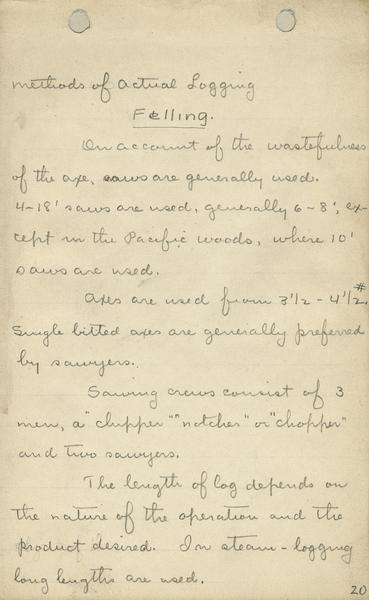 methods of actual Logging
Felling.
On account of the wastefulness
of the axe, saws are generally used.
4-18' saws are used, generally 6-8', ex-
cept in the Pacific woods, where 10'
saws are used.
Axes are used from 3 1/2 - 4 1/2 #.
Single bitted axes are generally preferred
by sawyers.
Sawing crews consist of 3
men, a "chipper" "notcher" or "chopper"
and two sawyers.
The length of log depends on
the nature of the operation and the
product desired. In steam-logging
long lengths are used.
20